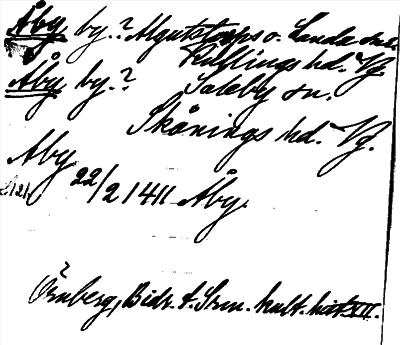 Åby by.? Algutstorps o. Landa snr
Kullings hd. Vg.
Åby by.? Saleby sn.
Skånings hd. Vg.
Aby
22/2 1411 Åby.
Örnberg, Bidr. t. Srm. kult. hist XII.